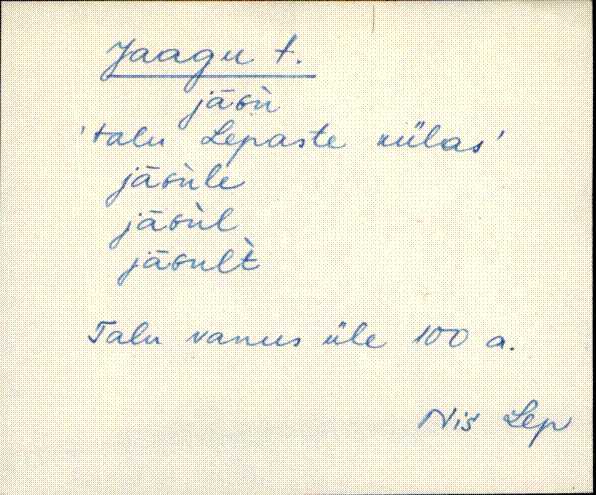 Jaagu t.
jāɢù
'talu Lepaste külas'
jāɢùle
jāɢùl
jāɢult̀
Talu vanus üle 100 a.
Nis Lep